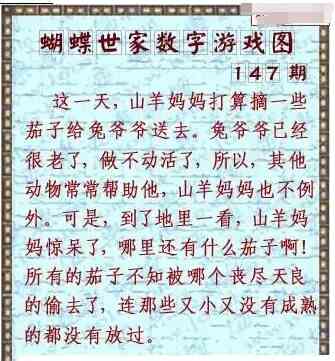 蝴蝶世家数字游戏图
147期
这一天，山羊妈妈打算摘一些
茄子给兔爷爷送去。兔爷爷已经
很老了，做不动活了，所以，其他
动物常常帮助他，山羊妈妈也不例
外。可是，到了地里一看，山羊妈
妈惊呆了，哪里还有什么茄子啊！
所有的茄子不知被哪个丧尽天良
的偷去了，连那些又小又没有成熟
的都没有放过。